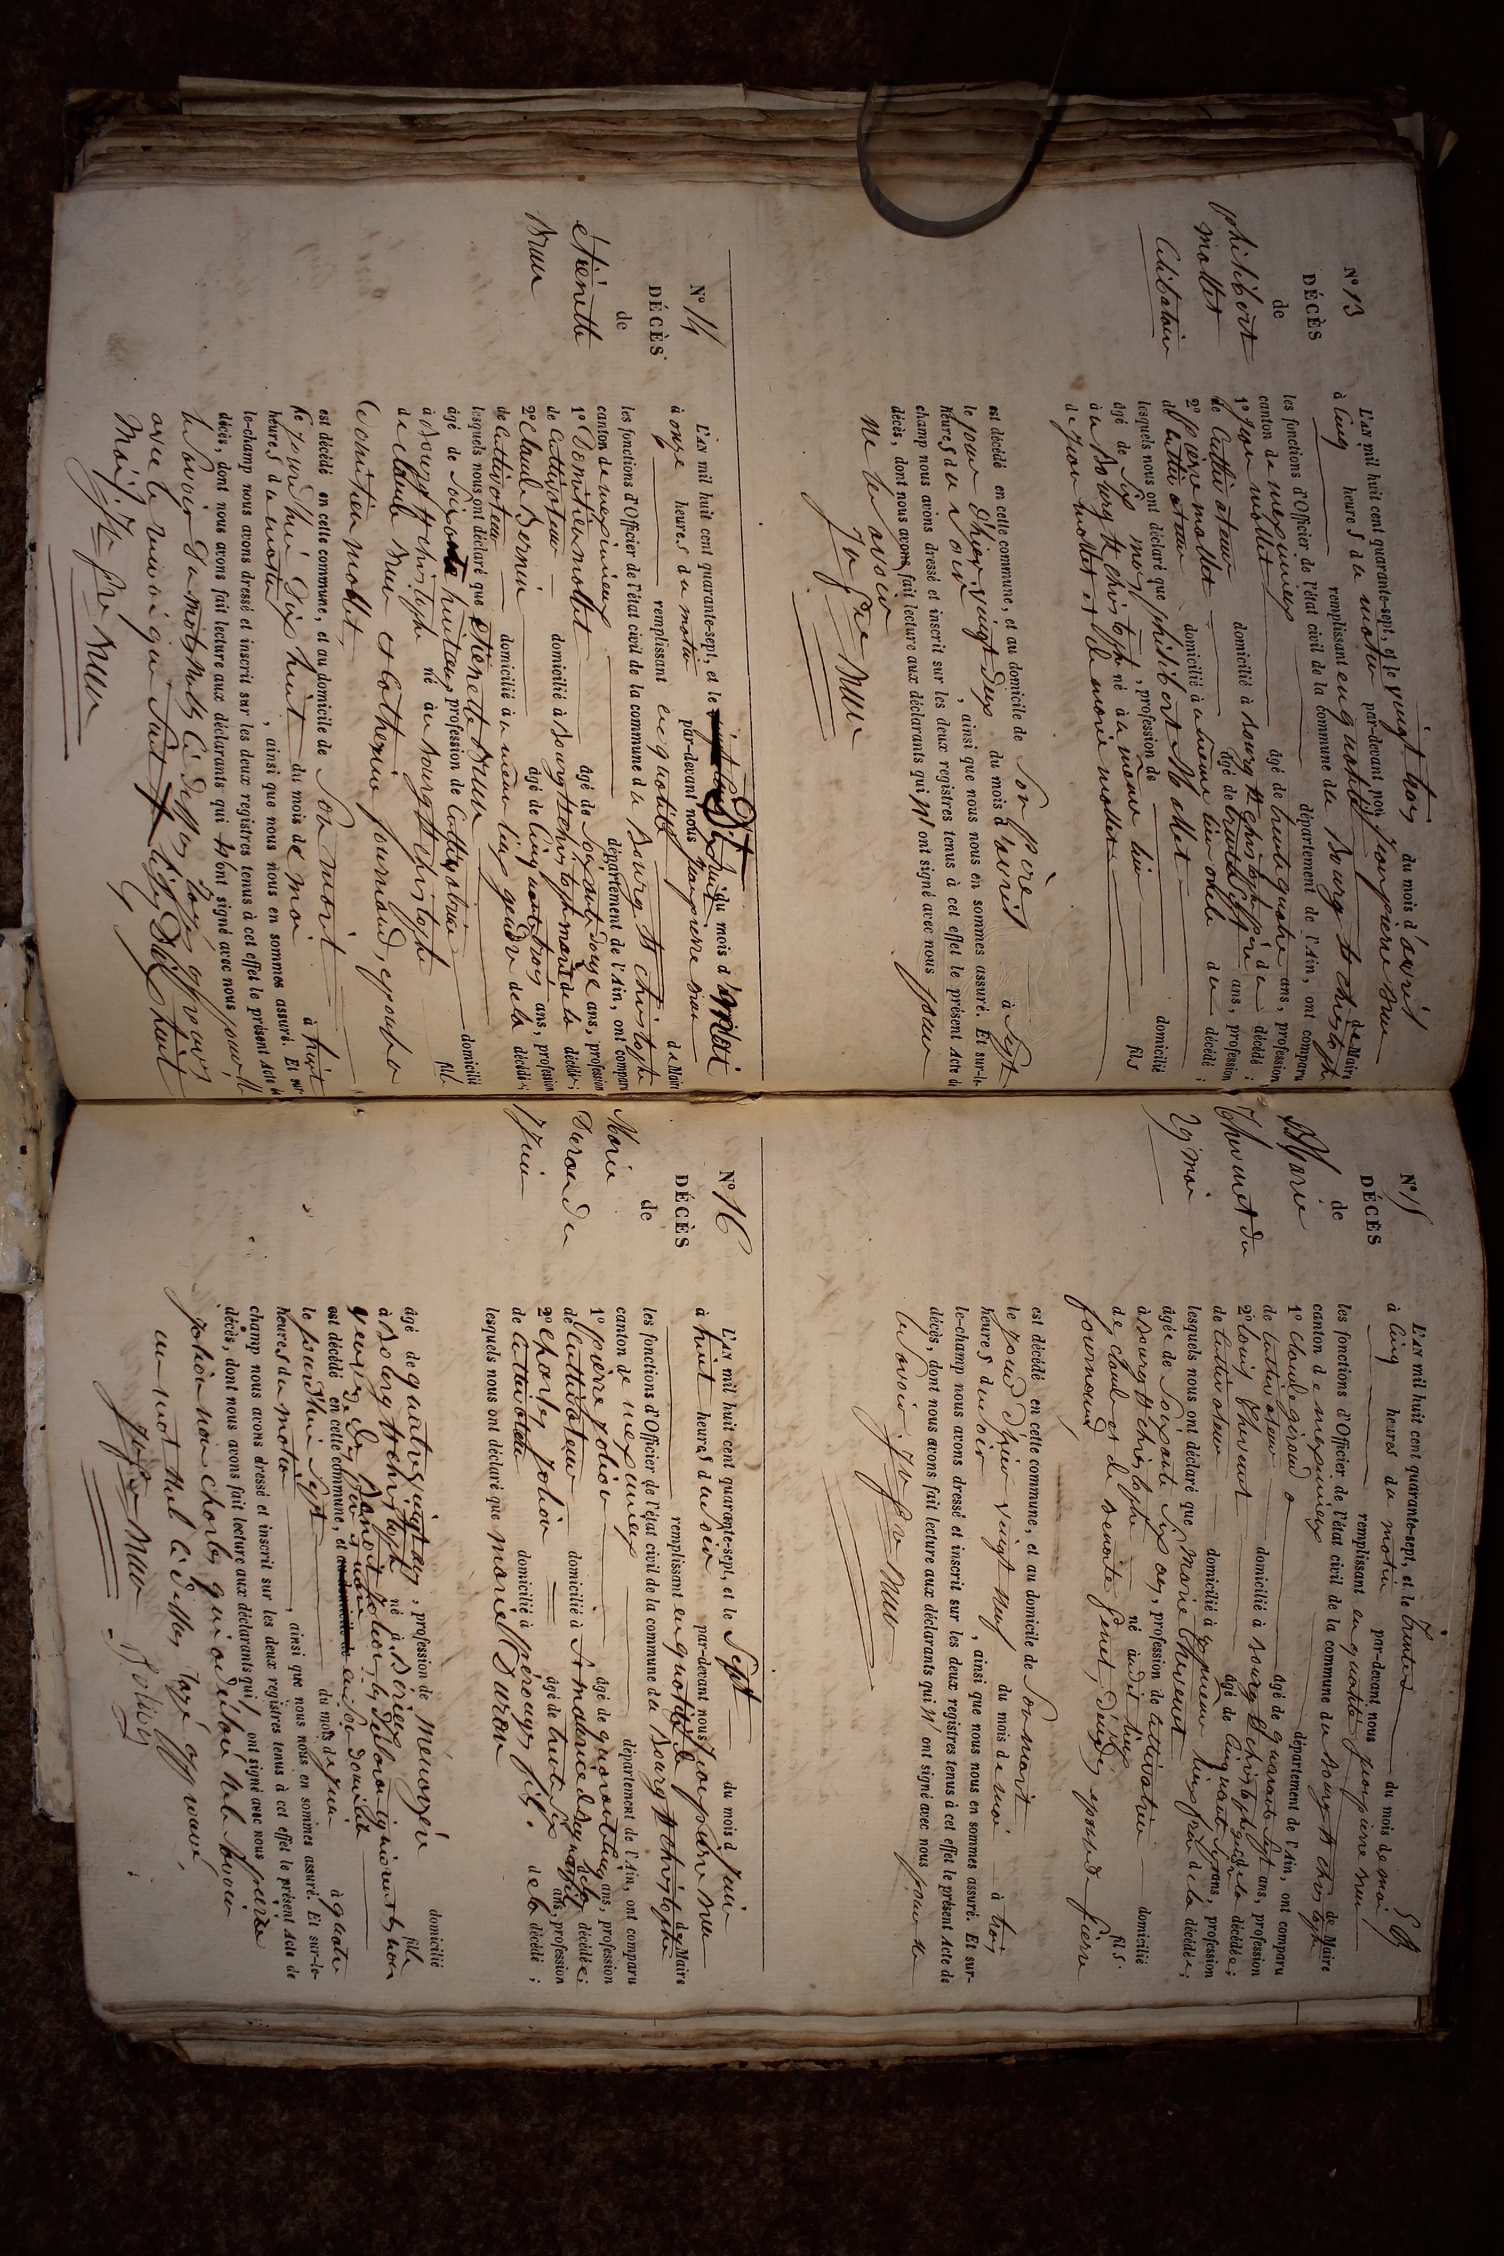 N° 13
DÉCÈS
de
philibert
mollet
Célibataire
L'AN mil huit cent quarante-sept, et le vingt trois du mois d'avril
à cinq heures du matin par-devant nous jean pierre Brun
remplissant en qualité de Maire
les fonctions d'Officier de l'état civil de la commune de Bourg St christophe
canton de meximieux département de l'Ain, ont comparu
1° jean mollet âgé de huit quatre ans, profession
de Cultivateur domicilié à Bourg St christophe père du décédé ;
2° pierre mollet âgé de trente sept ans, profession
de Cultivateur domicilié à u même lieu oncle du décédé ;
lesquels nous ont déclaré que philibert Mollet
âgé de six mois, profession de domicilié
à u Bourg St christophe né à u même lieu fils
de jean mollet et de marie mollet
est décédé en cette commune, et au domicile de son père à sept
heures du soir le jour d'hier vingt deux du mois d'avril
, ainsi que nous nous en sommes assuré. Et sur-le-
champ nous avons dressé et inscrit sur les deux registres tenus à cet effet le présent Acte de
décès, dont nous avons fait lecture aux déclarants qui n'ont signé avec nous pour
ne le savoir
Jn Pre Brun
N° 14
DÉCÈS
de
étienette
Brun
L'AN mil huit cent quarante-sept, et le Dix huit du mois de Mai
à onze heures du matin par-devant nous jean pierre Brun
remplissant en qualité de Maire
les fonctions d'Officier de l'état civil de la commune de Bourg St christophe
canton de meximieux département de l'Ain, ont comparu
1° Domitien mollet âgé de soixante douze ans, profession
de Cultivateur domicilié à Bourg St christophe mari de la décédée ;
2° Claude Bernin âgé de cinquante trois ans, profession
de Cultivateur domicilié à u même lieu gendre de la décédé ;
lesquels nous ont déclaré que étienette Brun
âgé de soixante huit ans, profession de Cultivatrice domicilié
à Bourg St christophe né à u Bourg St christophe fil
de claude Brun et catherine journaud, épouse de
Domitien mollet,
est décédé en cette commune, et au domicile de son mari à huit
heures du matin le jourd'hui dix huit du mois de mai
, ainsi que nous nous en sommes assuré. Et sur-
le-champ nous avons dressé et inscrit sur les deux registres tenus à cet effet le présent Acte de
décès, dont nous avons fait lecture aux déclarants qui n'ont signé avec nous pour ne
le savoir du mots nuls ci dessus rayés approuvés
avec le renvoi qui suit Dix huit
Mai Jn Pre Brun
N° 15
DÉCÈS
de
Marie
Thevenet du
29 mai
L'AN mil huit cent quarante-sept, et le trente du mois de mai
à cinq heures du matin par-devant nous jean pierre Brun
remplissant en qualité de Maire
les fonctions d'Officier de l'état civil de la commune du Bourg St christophe
canton de meximieux département de l'Ain, ont comparu
1° claude giraud âgé de quarante sept ans, profession
de cultivateur domicilié à Bourg St christophe gendre de la décédée ;
2° louis thevenet âgé de cinquante ans, profession
de cultivateur domicilié à u même lieu frère de la décédée ;
lesquels nous ont déclaré que marie thevenet
âgée de soixante six ans, profession de cultivatrice domicilié
à Bourg St christophe né audit lieu fils
de claude et de benoite genet, décédés épouse de pierre
journaud
est décédé en cette commune, et au domicile de son mari à trois
heures du soir le jour d'hier vingt neuf du mois de mai
, ainsi que nous nous en sommes assuré. Et sur-
le-champ nous avons dressé et inscrit sur les deux registres tenus à cet effet le présent Acte de
décès, dont nous avons fait lecture aux déclarants qui n'ont signé avec nous pour ne
le savoir. Jn Pre Brun
N° 16
DÉCÈS
de
Marie
Duran du
7 juin
L'AN mil huit cent quarante-sept, et le Sept du mois de juin
à huit heures du soir par-devant nous jean pierre Brun
remplissant en qualité de Maire
les fonctions d'Officier de l'état civil de la commune du Bourg St christophe
canton de meximieux département de l'Ain, ont comparu
1° pierre jolion âgé de quarante cinq ans, profession
de Cultivateur domicilié à St maurice fils de la décédée ;
2° charles jolion âgé de trente six ans, profession
de Cultivateur domicilié à pérouges fils de la décédé ;
lesquels nous ont déclaré que marie Duran
âgé de quatrevingt ans, profession de ménagère domicilié
à Bourg St christophe né à fille
veuve de Benoit jolion
est décédé en cette commune, et en son domicile à quatre
heures du matin le jourd'hui sept du mois de juin
, ainsi que nous nous en sommes assuré. Et sur-le-
champ nous avons dressé et inscrit sur les deux registres tenus à cet effet le présent Acte de
décès, dont nous avons fait lecture aux déclarants qui ont signé avec nous pierre
jolion non charles qui a dit ne le savoir
un mot nul ci dessus rayé approuvé,
Jn Pre Brun
P. Jolion